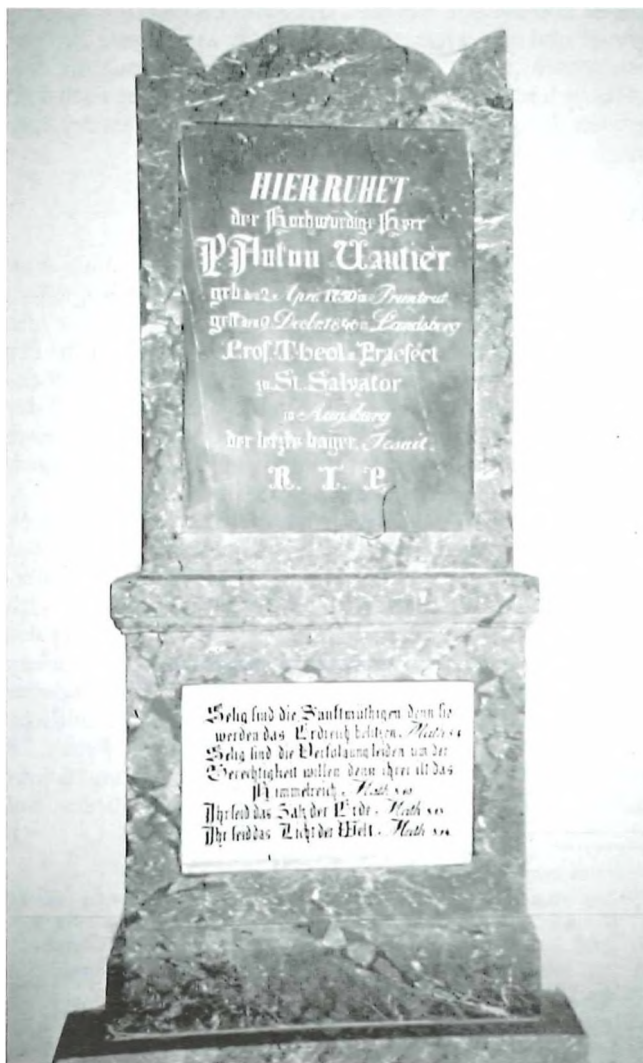 HIER RUHET
der Hochwürdige Herr
P. Anton Vautier
geb. den 2. Apr. 1750 in Pruntrut
gest. den 9. Decbr. in Landsberg
Prof. Theol. u. Praefect
zu St. Salvator
in Augsburg
der letzte bayer. Jesuit.
R. I. P.
Selig sind die Sanftmüthigen denn sie
werden das Erdreich besitzen. Math 5.4
Selig sind die Verfolgung leiden um der
Gerechtigkeit willen denn ihrer ist das
Himmelreich. Math 5.10
Ihr seid das Salz der Erde. Math 5.13
Ihr seid das Licht der Welt. Math 5.14